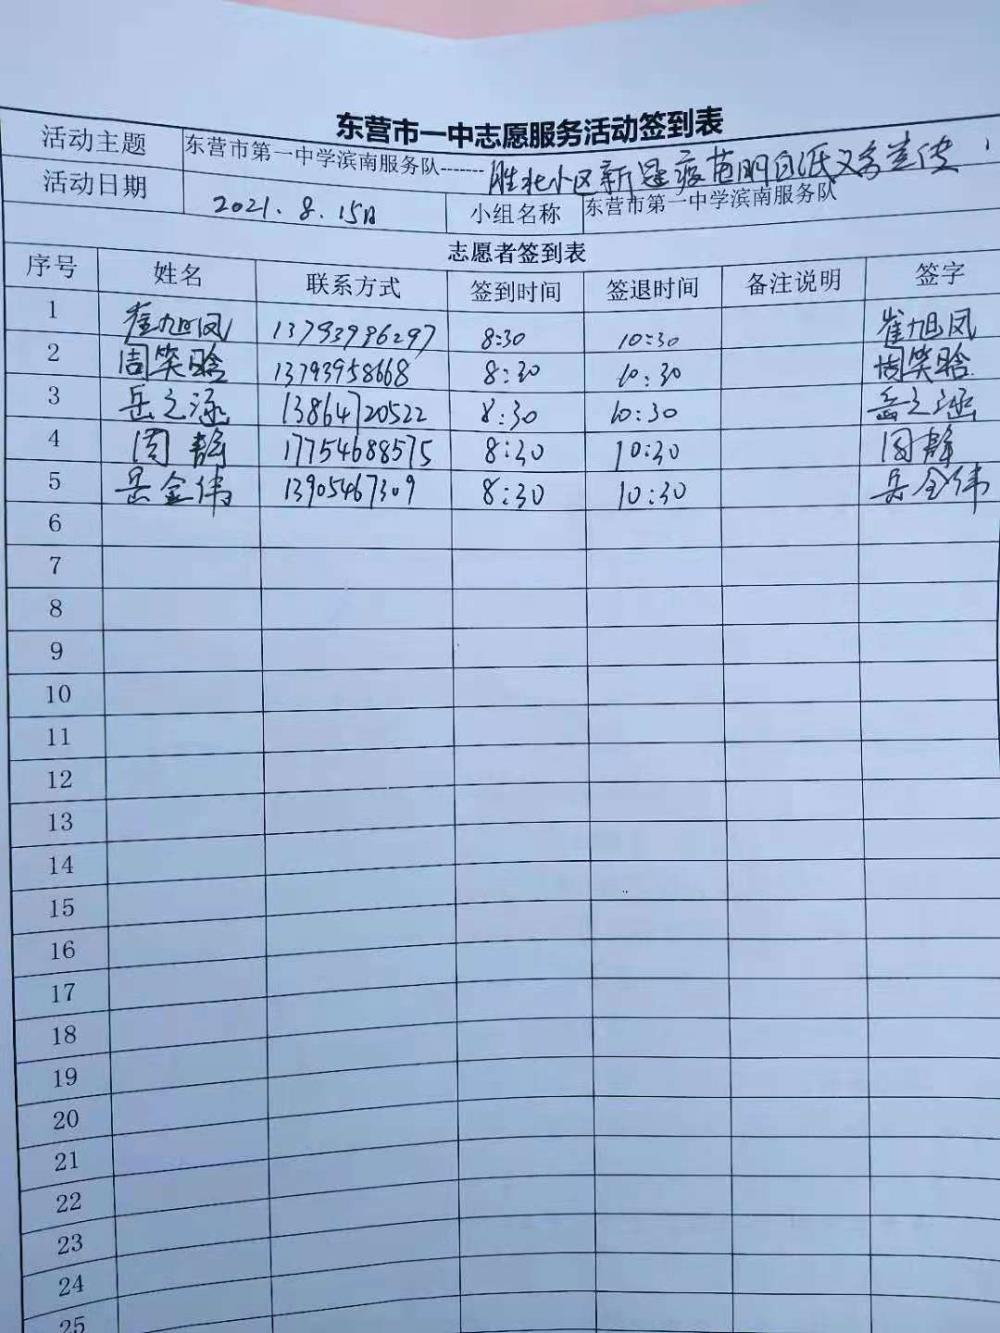 东营市一中志愿服务活动签到表
活动主题 东营市第一中学滨南服务队------- 胜北小区新冠疫苗明白纸义务宣传
活动日期 2021.8.15日 小组名称 东营市第一中学滨南服务队
志愿者签到表
序号 姓名 联系方式 签到时间 签退时间 备注说明 签字
1 崔旭凤 13793996297 8:30 10:30 崔旭凤
2 周笑晗 13793958668 8:30 10:30 周笑晗
3 岳之涵 13864720522 8:30 10:30 岳之涵
4 周静 17754688575 8:30 10:30 周静
5 岳金伟 13905467309 8:30 10:30 岳金伟
6
7
8
9
10
11
12
13
14
15
16
17
18
19
20
21
22
23
24
25